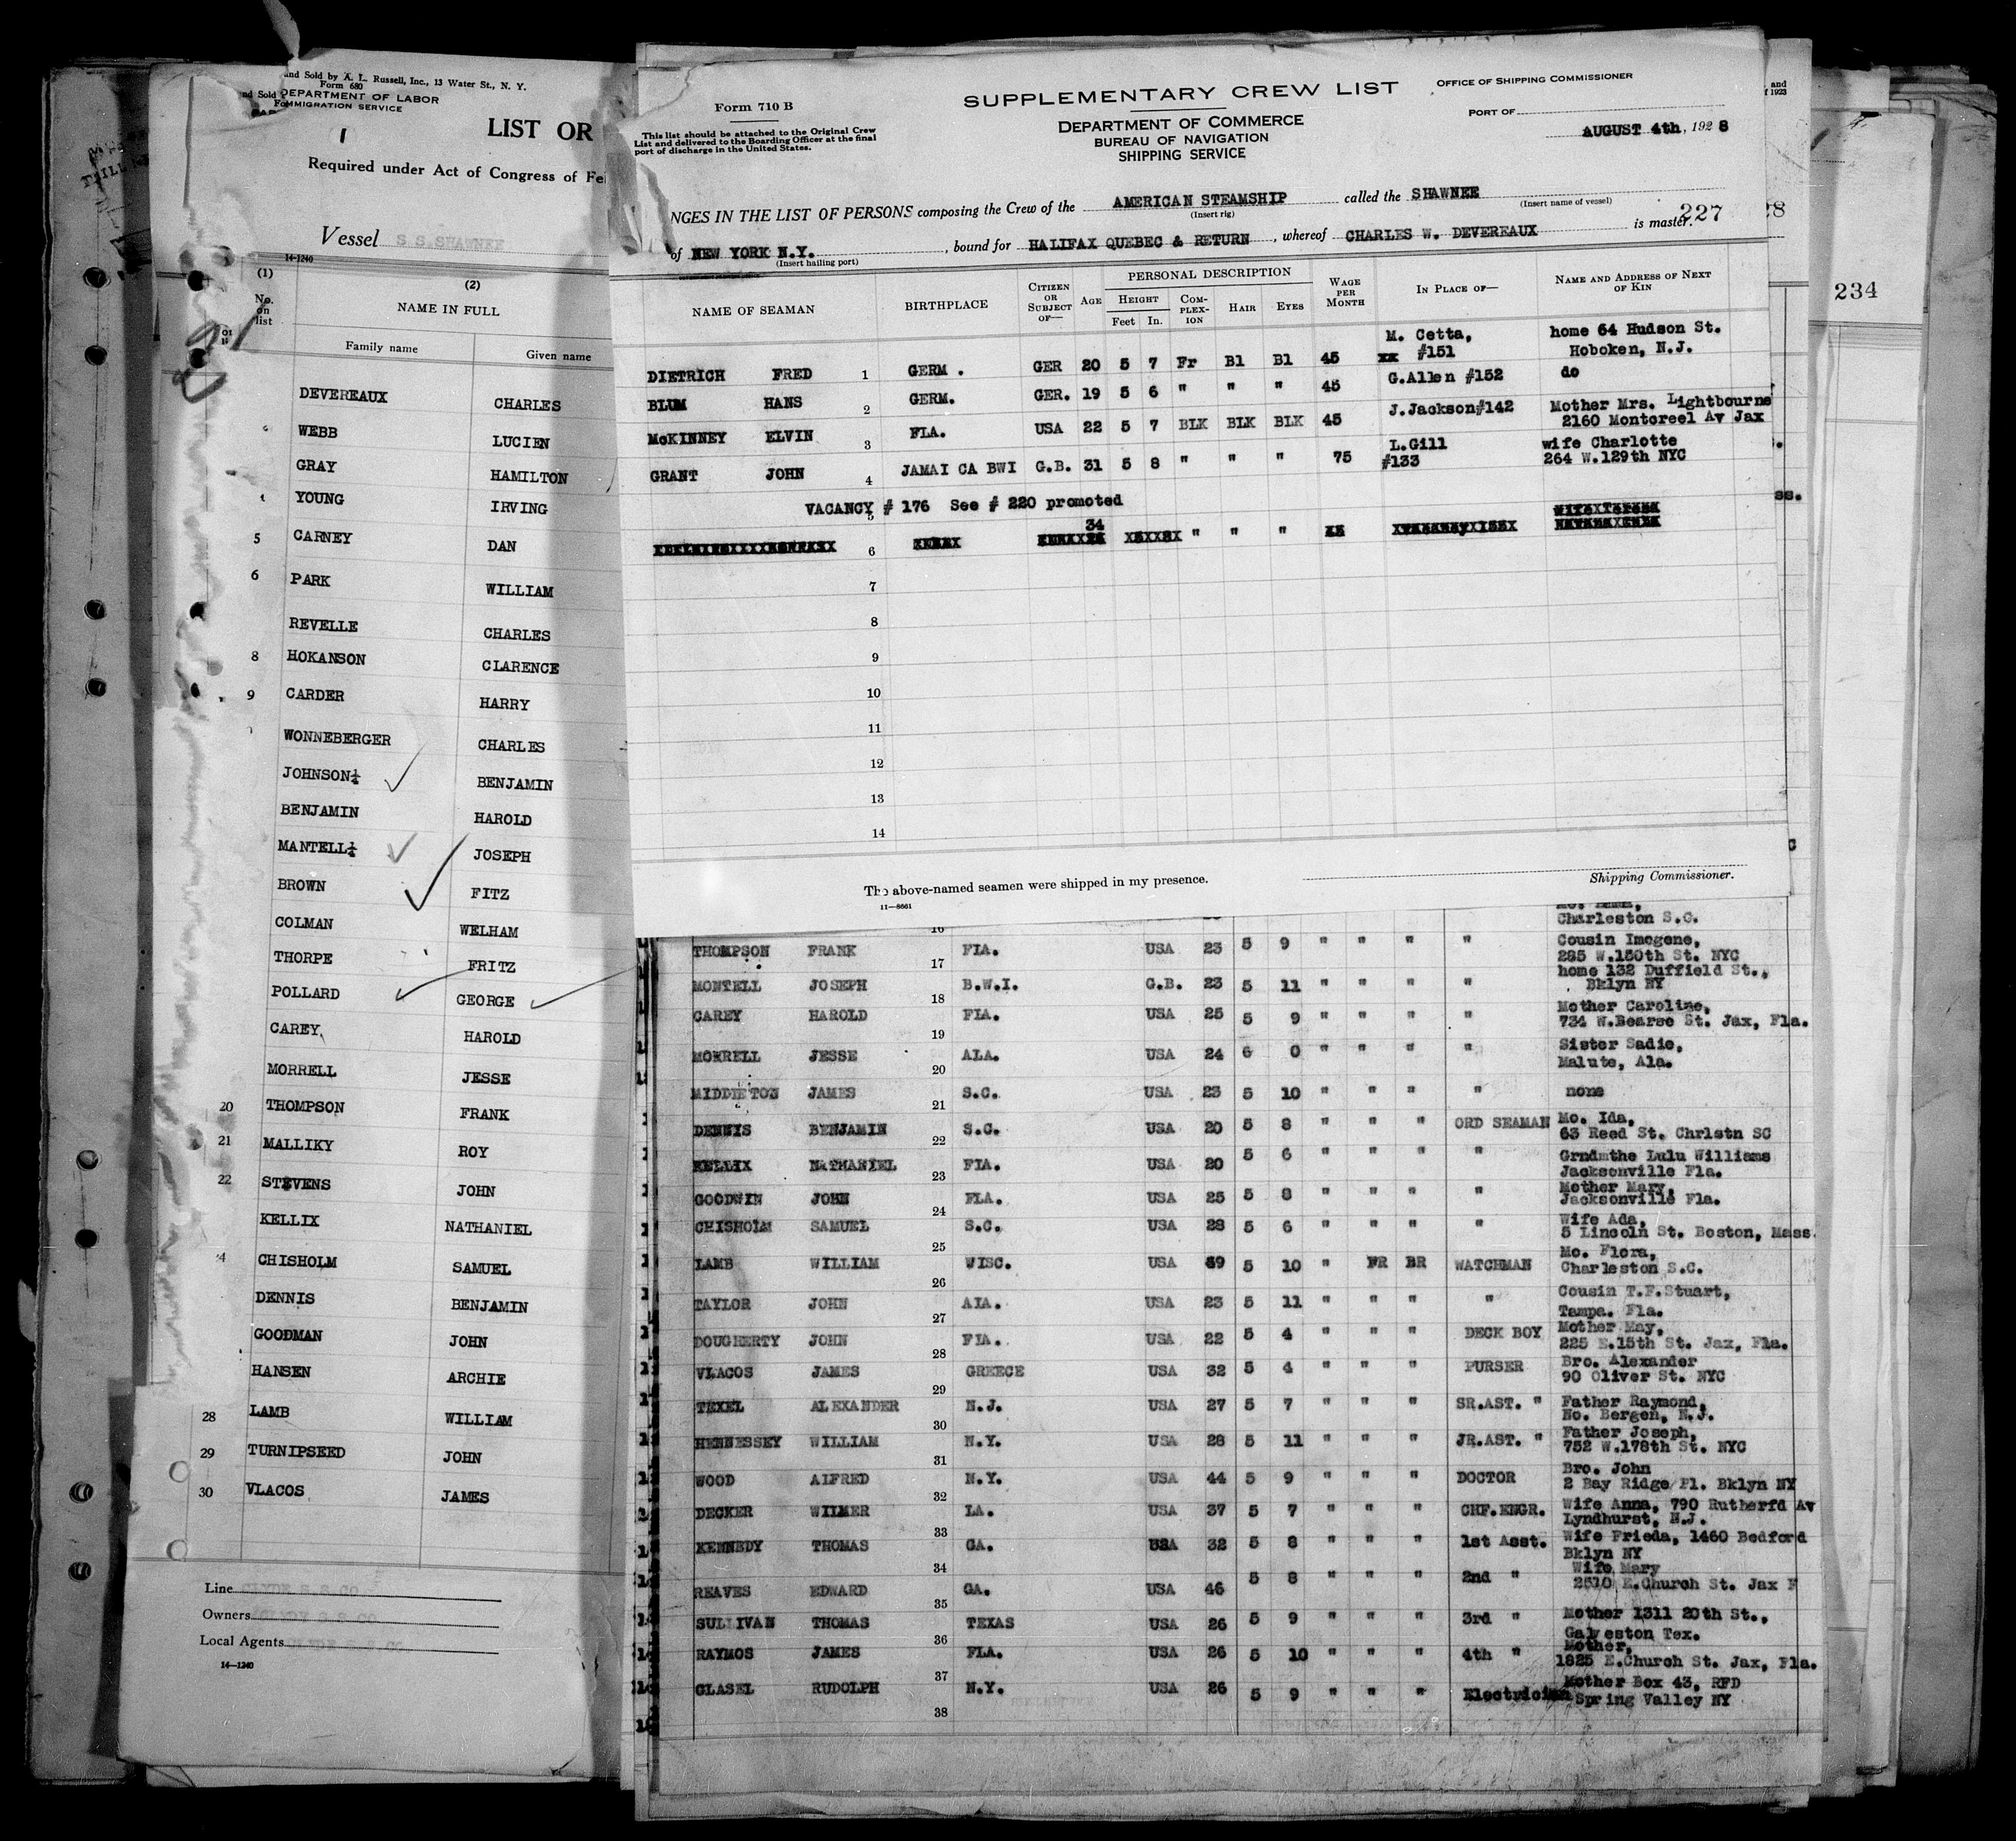 and Sold by A. L. Russell, Inc., 13 Water St., N. Y.
Form 680
DEPARTMENT OF LABOR
IMMIGRATION SERVICE
1
LIST OR
Required under Act of Congress of Fe
Vessel S S.SHAWNEE
14-1240
(1) (2)
No. on list NAME IN FULL
Family name Given name
DEVEREAUX CHARLES
WEBB LUCIEN
GRAY HAMILTON
YOUNG IRVING
5 CARNEY DAN
6 PARK WILLIAM
REVELLE CHARLES
8 HOKANSON CLARENCE
9 CARDER HARRY
WONNEBERGER CHARLES
JOHNSON¼ BENJAMIN
BENJAMIN HAROLD
MANTELL¼ JOSEPH
BROWN FITZ
COLMAN WELHAM
THORPE FRITZ
POLLARD GEORGE
CAREY HAROLD
MORRELL JESSE
20 THOMPSON FRANK
21 MALLIKY ROY
22 STEVENS JOHN
KELLIX NATHANIEL
4 CHISHOLM SAMUEL
DENNIS BENJAMIN
GOODMAN JOHN
HANSEN ARCHIE
28 LAMB WILLIAM
29 TURNIPSEED JOHN
30 VLACOS JAMES
Line
Owners
Local Agents
14—1240
Form 710 B
This list should be attached to the Original Crew
List and delivered to the Boarding Officer at the final
port of discharge in the United States.
SUPPLEMENTARY CREW LIST
DEPARTMENT OF COMMERCE
BUREAU OF NAVIGATION
SHIPPING SERVICE
OFFICE OF SHIPPING COMMISSIONER
PORT OF
AUGUST 4th, 1928
NGES IN THE LIST OF PERSONS composing the Crew of the AMERICAN STEAMSHIP called the SHAWNEE
(Insert rig) (Insert name of vessel)
227 28
of NEW YORK N.Y., bound for HALIFAX QUEBEC & RETURN, whereof CHARLES W. DEVEREAUX is master.
(Insert hailing port)
NAME OF SEAMAN BIRTHPLACE CITIZEN OR SUBJECT OF— AGE PERSONAL DESCRIPTION WAGE PER MONTH IN PLACE OF— NAME AND ADDRESS OF NEXT OF KIN
HEIGHT COMPLEXION HAIR EYES
Feet In.
M. Cetta, home 64 Hudson St.
DIETRICH FRED 1 GERM . GER 20 5 7 Fr Bl Bl 45 xx #151 Hoboken, N.J.
BLUM HANS 2 GERM. GER. 19 5 6 " " " 45 G.Allen #152 do
McKINNEY ELVIN 3 FLA. USA 22 5 7 BLK BLK BLK 45 J.Jackson#142 Mother Mrs. Lightbourne
2160 Montcreel Av Jax
GRANT JOHN 4 JAMAI CA BWI G.B. 31 5 8 " " " 75 L.Gill #133 wife Charlotte
264 W.129th NYC
VACANCY 5 # 176 See # 220 promoted
34
6 " " "
7
8
9
10
11
12
13
14
The above-named seamen were shipped in my presence.
Shipping Commissioner.
11—8661
234
Charleston S.C.
16
THOMPSON FRANK 17 FLA. USA 23 5 9 " " " " Cousin Imogene,
285 W.150th St. NYC
MONTELL JOSEPH 18 B.W.I. G.B. 23 5 11 " " " " home 132 Duffield St.,
Bklyn NY
CAREY HAROLD 19 FLA. USA 25 5 9 " " " " Mother Caroline,
734 W.Bearse St. Jax, Fla.
MORRELL JESSE 20 ALA. USA 24 6 0 " " " " Sister Sadie,
Malute, Ala.
MIDDLETON JAMES 21 S.C. USA 23 5 10 " " " " none
DENNIS BENJAMIN 22 S.C. USA 20 5 8 " " " ORD SEAMAN Mo. Ida,
63 Reed St. Chrlstn SC
KELLIX NATHANIEL 23 FLA. USA 20 5 6 " " " " Grndmthe Lulu Williams
Jacksonville Fla.
GOODWIN JOHN 24 FLA. USA 25 5 8 " " " " Mother Mary,
Jacksonville Fla.
CHISHOLM SAMUEL 25 S.C. USA 28 5 6 " " " " Wife Ada,
5 Lincoln St. Boston, Mass.
LAMB WILLIAM 26 WISC. USA 49 5 10 " FR BR WATCHMAN Mo. Flora,
Charleston S.C.
TAYLOR JOHN 27 ALA. USA 23 5 11 " " " " Cousin T.F.Stuart,
Tampa. Fla.
DOUGHERTY JOHN 28 FLA. USA 22 5 4 " " " DECK BOY Mother May,
225 E.15th St. Jax, Fla.
VLACOS JAMES 29 GREECE USA 32 5 4 " " " PURSER Bro. Alexander
90 Oliver St. NYC
TEXEL ALEXANDER 30 N.J. USA 27 5 7 " " " SR.AST. " Father Raymond,
No. Bergen, N.J.
HENNESSEY WILLIAM 31 N.Y. USA 28 5 11 " " " JR.AST. " Father Joseph,
752 W.178th St. NYC
WOOD ALFRED 32 N.Y. USA 44 5 9 " " " DOCTOR Bro. John
2 Bay Ridge Pl. Bklyn NY
DECKER WILMER 33 LA. USA 37 5 7 " " " CHF.ENGR. Wife Anna, 790 Rutherfd Av
Lyndhurst, N.J.
KENNEDY THOMAS 34 GA. USA 32 5 8 " " " 1st Asst. Wife Frieda, 1460 Bedford
Bklyn NY
REAVES EDWARD 35 GA. USA 46 5 8 " " " 2nd " Wife Mary
2510 E.Church St. Jax F
SULLIVAN THOMAS 36 TEXAS USA 26 5 9 " " " 3rd " Mother 1311 20th St.,
Galveston Tex.
RAYMOS JAMES 37 FLA. USA 26 5 10 " " " 4th " Mother,
1825 E.Church St. Jax, Fla.
GLASEL RUDOLPH 38 N.Y. USA 26 5 9 " " " Electrician Mother Box 43, RFD
Spring Valley NY